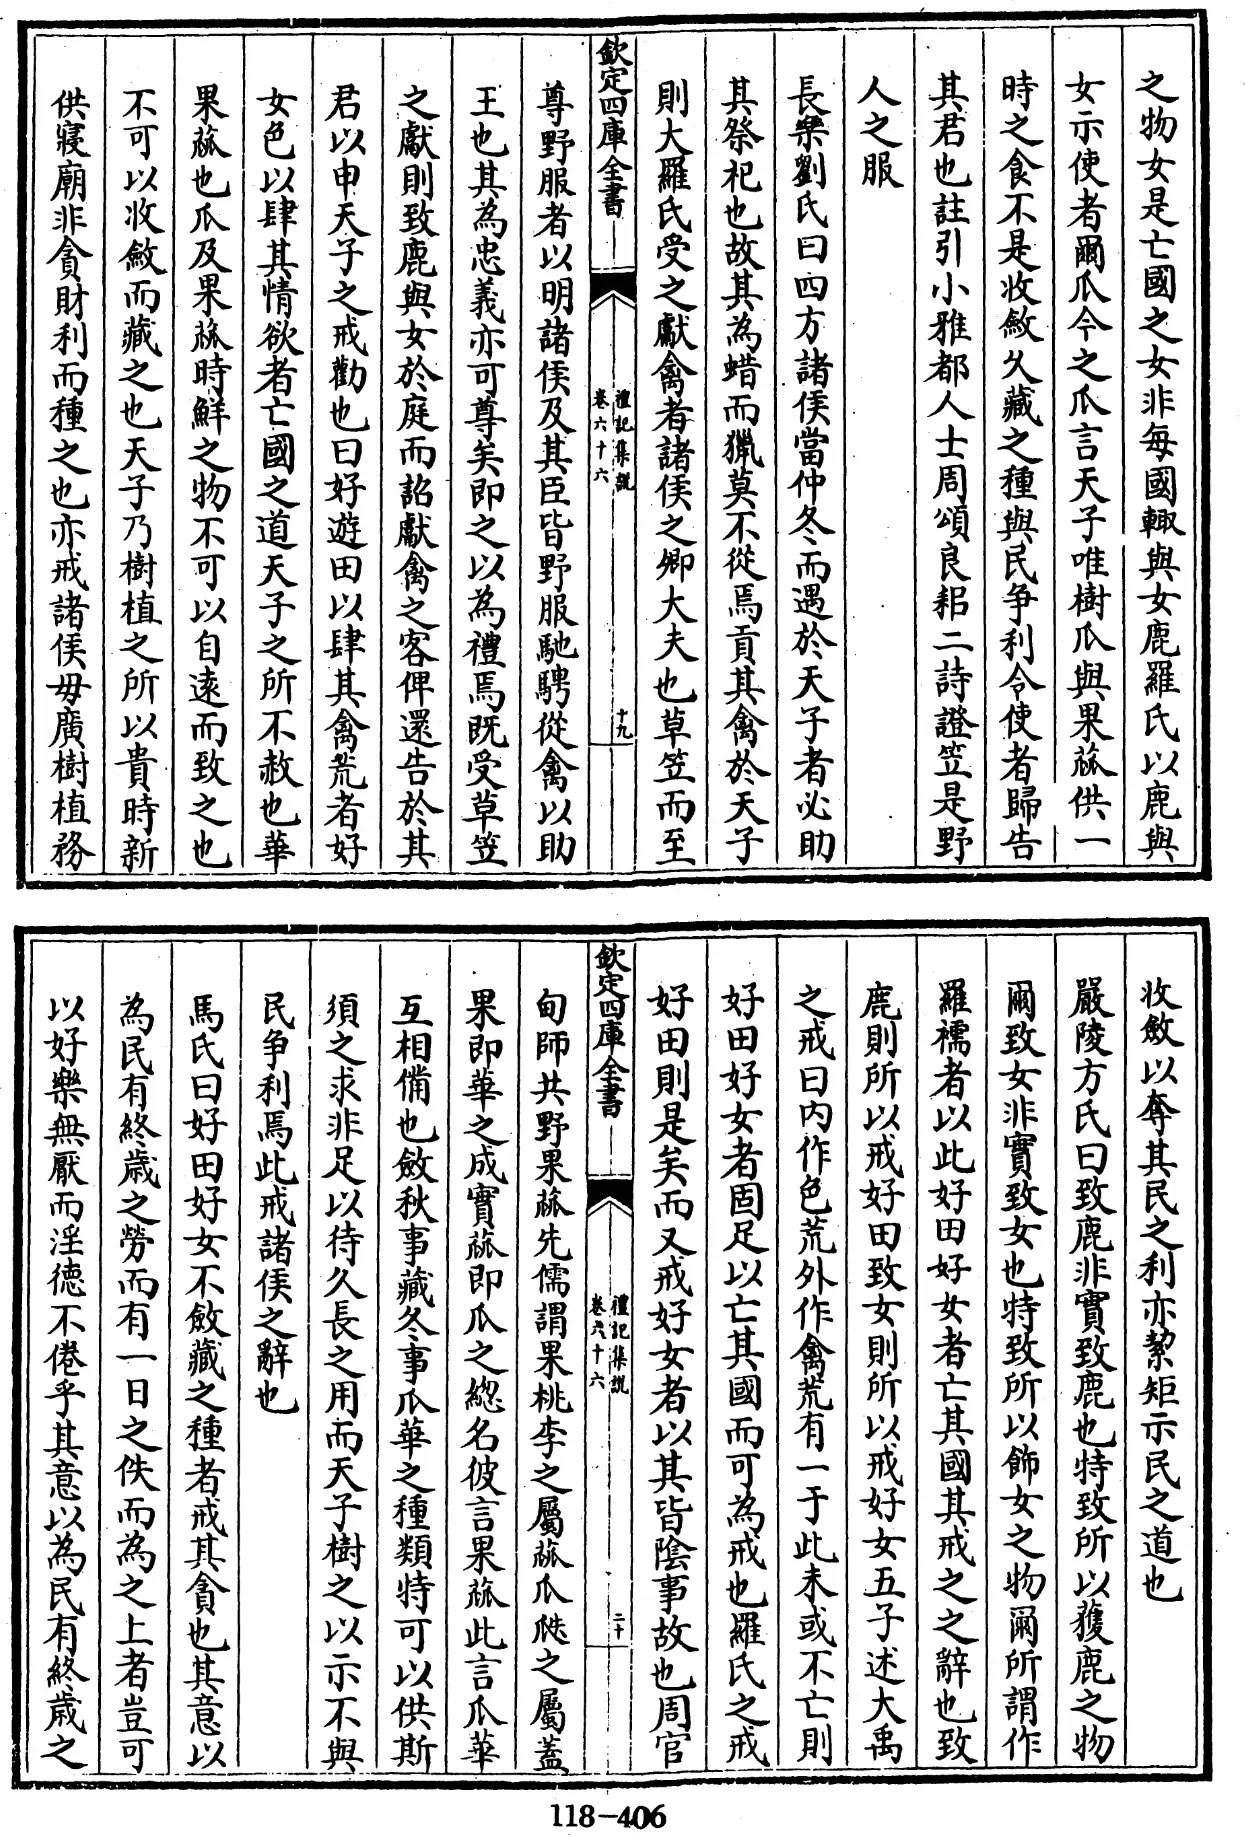 之物女是亡國之女非每國輙與女鹿羅氏以鹿與
女示使者爾瓜今之瓜言天子唯樹瓜與果蓏供一
時之食不是收斂久藏之種與民争利令使者歸告
其君也註引小雅都人士周頌良耜二詩證笠是野
人之服
長樂劉氏曰四方諸侯當仲冬而遇於天子者必助
其祭祀也故其為蜡而獵莫不從焉貢其禽於天子
則大羅氏受之獻禽者諸侯之卿大夫也草笠而至
欽定四庫全書
禮記集說
卷六十六
十九
尊野服者以明諸侯及其臣皆野服馳騁從禽以助
王也其為忠義亦可尊矣即之以為禮焉既受草笠
之獻則致鹿與女於庭而詔獻禽之客俾還告於其
君以申天子之戒勸也曰好遊田以肆其禽荒者好
女色以肆其情欲者亡國之道天子之所不赦也華
果蓏也瓜及果蓏時鮮之物不可以自遠而致之也
不可以收斂而藏之也天子乃樹植之所以貴時新
供寢廟非貪財利而種之也亦戒諸侯毋廣樹植務
收斂以奪其民之利亦絜矩示民之道也
嚴陵方氏曰致鹿非實致鹿也特致所以獲鹿之物
爾致女非實致女也特致所以飾女之物爾所謂作
羅襦者以此好田好女者亡其國其戒之之辭也致
鹿則所以戒好田致女則所以戒好女五子述大禹
之戒曰内作色荒外作禽荒有一于此未或不亡則
好田好女者固足以亡其國而可為戒也羅氏之戒
好田則是矣而又戒好女者以其皆陰事故也周官
欽定四庫全書
禮記集說
卷六十六
二十
甸師共野果蓏先儒謂果桃李之屬蓏瓜瓞之屬蓋
果即華之成實蓏即瓜之緫名彼言果蓏此言瓜華
互相備也斂秋事藏冬事瓜華之種類特可以供斯
須之求非足以待久長之用而天子樹之以示不與
民争利焉此戒諸侯之辭也
馬氏曰好田好女不斂藏之種者戒其貪也其意以
為民有終歳之勞而有一日之佚而為之上者豈可
以好樂無厭而淫德不倦乎其意以為民有終歳之
118-406